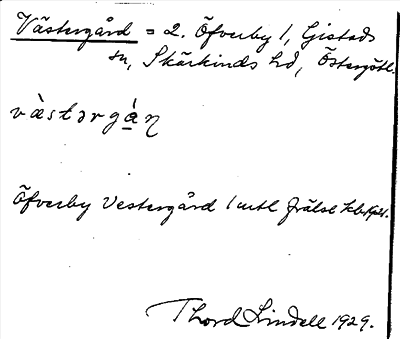 Västergård = 2. Öfverby 1, Gistads
sn, Skärkinds hd, Östergötl.
væ̀stərgá̱ɳ
Öfverby Vestergård 1 mtl Frälse
Thord Lindell 1929.